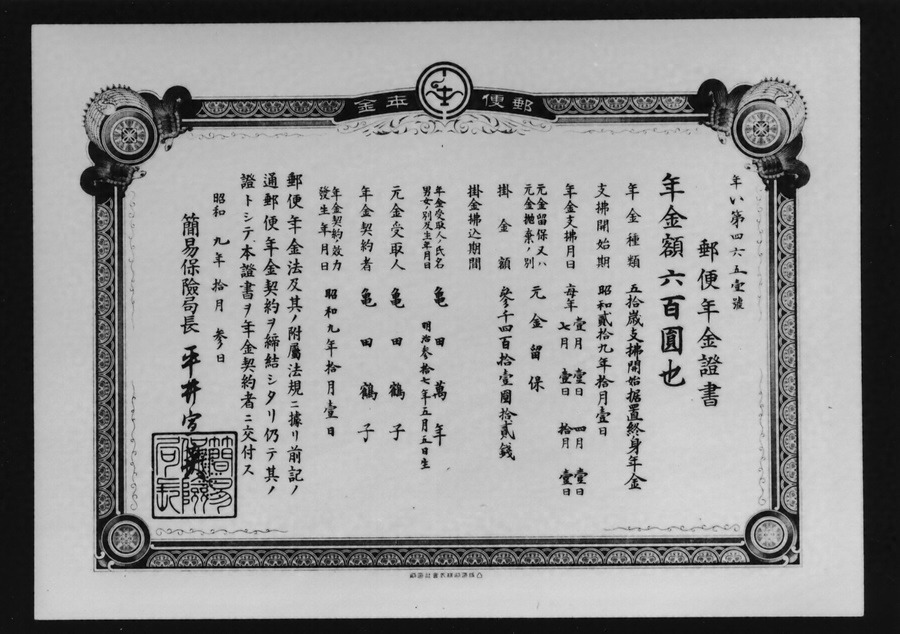 郵便年金
年い第四六五壹號
郵便年金證書
年金額六百圓也
年金種類 五拾歳支拂開始据置終身年金
支拂開始期 昭和貳拾九年拾月壹日
年金支拂月日 每年 壹月壹日 四月壹日
七月壹日 拾月壹日
元金留保又ハ
元金抛棄ノ別 元金留保
掛金額 參千四百拾壹圓拾貳錢
掛金拂込期間
年金受取人ノ氏名 龜田萬年
男女ノ別及生年月日 明治參拾七年五月五日生
元金受取人 龜田鶴子
年金契約者 龜田鶴子
年金契約ノ效力
發生年月日 昭和九年拾月壹日
郵便年金法及其ノ附屬法規ニ據リ前記ノ
通郵便年金契約ヲ締結シタリ仍テ其ノ
證トシテ本證書ヲ年金契約者ニ交付ス
昭和九年拾月參日
簡易保險局長 平井
簡易保險局長